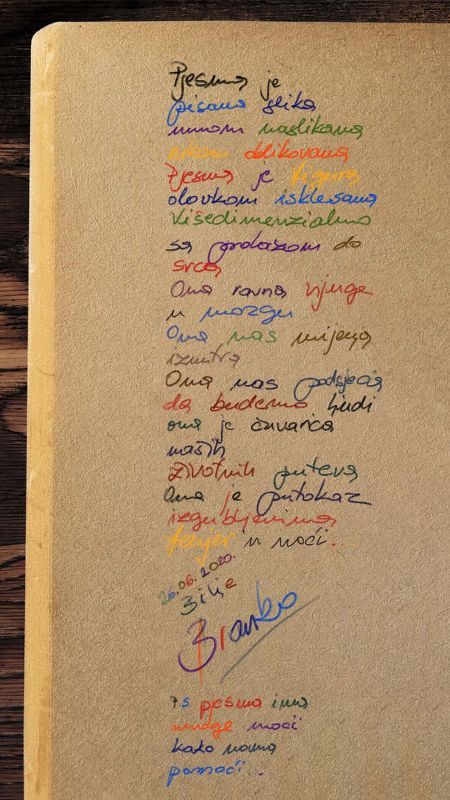 Pjesma je
pisana slika
umom naslikana
rukom oblikovana
Pjesma je figura
olovkom isklesana
Višedimenzialno
sa prolazom do
srca
Ona ravna vijuge
u mozgu
Ona nas mijenja
iznutra
Ona nas podsjeća
da budemo ljudi
ona je čuvarica
naših
životnih puteva
Ona je putokaz
izgubljenima
fenjer u noći...
26.06.2020.
Bilje
Branko
PS pjesma ima
mnoge moći
kako nama
pomoći...